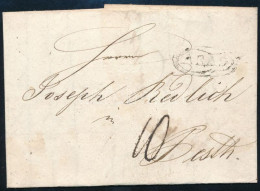 Herrn
Joseph Redlich
in
10
Pesth.